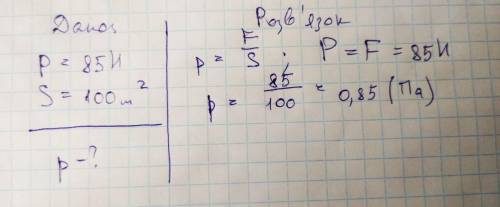 Дано:
P = 85 Н
S = 100 m²
p - ?
Розв'язок
p = F/S ; P = F = 85 Н
p = 85/100 = 0,85 (Па)